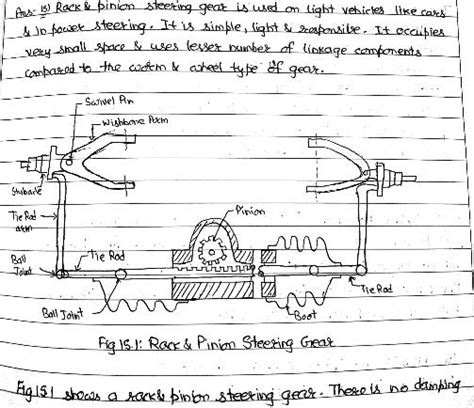 Ans: 15) Rack & pinion steering gear is used on light vehicles like cars
& in power steering. It is simple, light & responsive. It occupies
very small space & uses lesser number of linkage components
compared to the worm & wheel type of gear.
Swivel Pin
Wishbone Arm
Stubaxle
Tie Rod
arm
Pinion
Ball
Joint
Tie Rod
Tie Rod
Ball Joint
Boot
Fig 15.1: Rack & Pinion Steering Gear
Fig 15.1 shows a rack & pinion steering gear. There is no damping